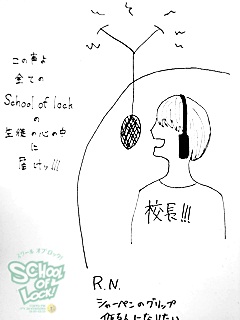 この声よ
全ての
School of lock
の
生徒の心の中
に
届けッ!!!
校長!!!
スクール オブ ロック!
SCHOOL
OF
LOCK!
R.N.
シャーペンのグリップ